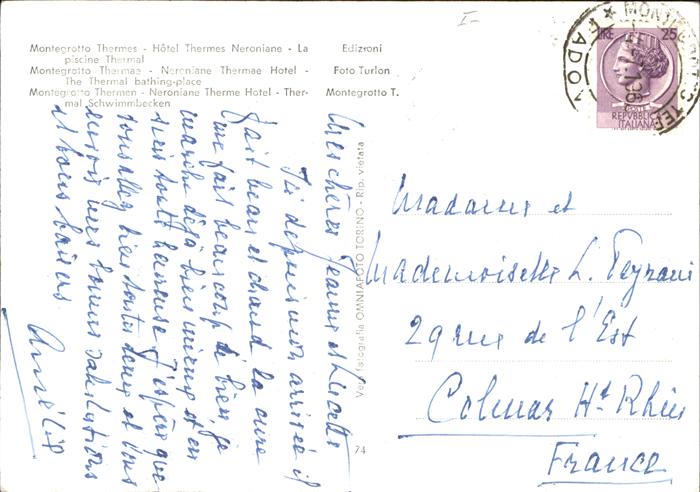 Montegrotto Thermes - Hôtel Thermes Neroniane - La
piscine Thermal
Montegrotto Thermae - Neroniane Thermae Hotel -
The Thermal bathing-place
Montegrotto Thermen - Neroniane Therme Hotel - Ther-
mal Schwimmbecken
Edizioni
Foto Turlon
Montegrotto T.
LIRE 25
REPVBBLICA
ITALIANA
PADOVA
Mes chères Jeanne et Lucette
Ici depuis mon arrivée il
fait beau et chaud la cure
me fait beaucoup de bien, je
marche déjà bien mieux et en
suis toute heureuse j'espère que
vous allez bien toutes deux et vous
envois mes bonnes salutations
et bons baisers
Amélie
Vera fotografia OMNIAFOTO TORINO - Rip. vietata
74
Madame et
Mademoiselle L. Peyrani
29 rue de l'Est
Colmar Ht Rhin
France